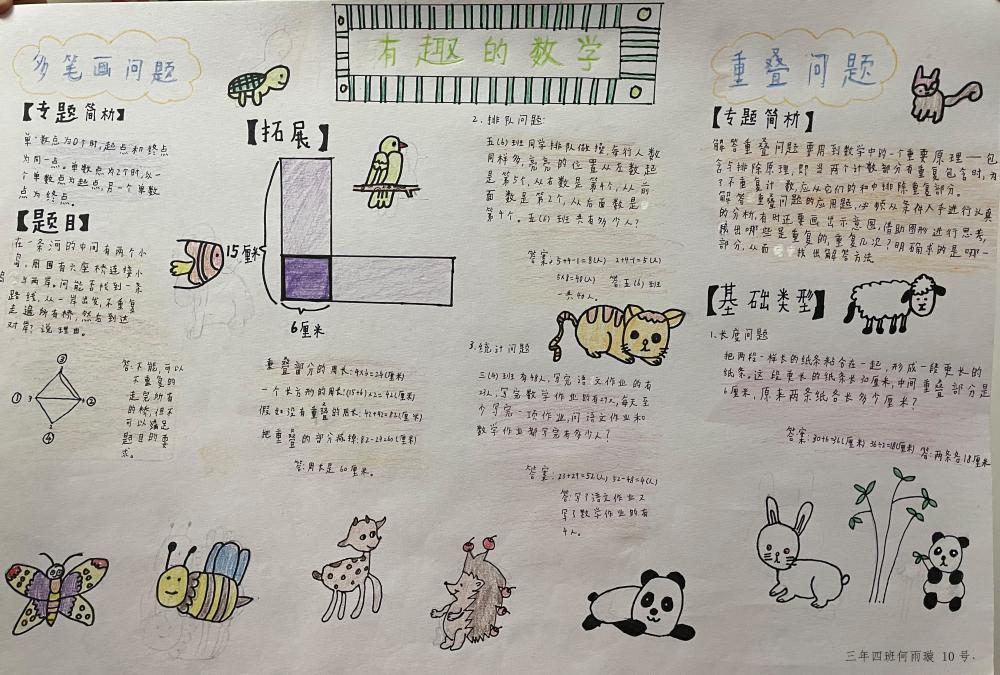 有趣的数学
多笔画问题
【专题简析】
单数点为0个时,起点和终点
为同一点。单数点为2个时,以一
个单数点为起点,另一个单数
点为终点。
【题目】
在一条河的中间有两个小
岛,周围有六座桥连接小
岛与两岸。问能否找到一条
路线,从一岸出发,不重复
走遍所有桥,然后到达
对岸?说理由。
①
②
③
④
答:不能,可以
不重复的
走完所有
的桥,但不
可以满足
题目的要
求。
【拓展】
15厘米
6厘米
重叠部分的周长:
一个长方形的周长:(15+6)×2=42(厘米)
假如没有重叠的周长:42+42=84(厘米)
把重叠的部分减掉:
答:周长是60厘米。
2.排队问题:
五(6)班同学排队做操每行人数
同样多,亮亮的位置从左数起
是第5个,从右数是第4个,从前
面数是第2个,从后面数是
第4个。五(6)班共有多少人?
答案:5+4-1=8(人) 2+4-1=5(人)
5×8=40(人) 答:五(6)班
一共40人。
3.统计问题
三(4)班有48人,写完语文作业的有
人,写完数学作业的有29人,每天至
个写完一项作业,问语文作业和
数学作业都写完有多少人?
答案:23+29=52(人) 52-48=4(人)
答:写了语文作业又
写了数学作业的有
4人。
重叠问题
【专题简析】
解答重叠问题要用到数学中的一个重要原理——包
含与排除原理,即当两个计数部分有重复包含时,为
了不重复计数,应从它们的和中排除重复部分。
解答重叠问题的应用题,必须从条件入手进行认真
的分析,有时还要画出示意图,借助图形进行思考,
找出哪些是重复的,重复几次?明确求的是哪一
部分,从而找出解答方法
【基础类型】
1.长度问题
把两段一样长的纸条粘合在一起,形成一段更长的
纸条。这段更长的纸条长30厘米,中间重叠部分是
6厘米,原来两条纸各长多少个厘米?
答案:30+6=36(厘米) 36÷2=18(厘米) 答:两条各18厘米
三年四班何雨璇 10号.